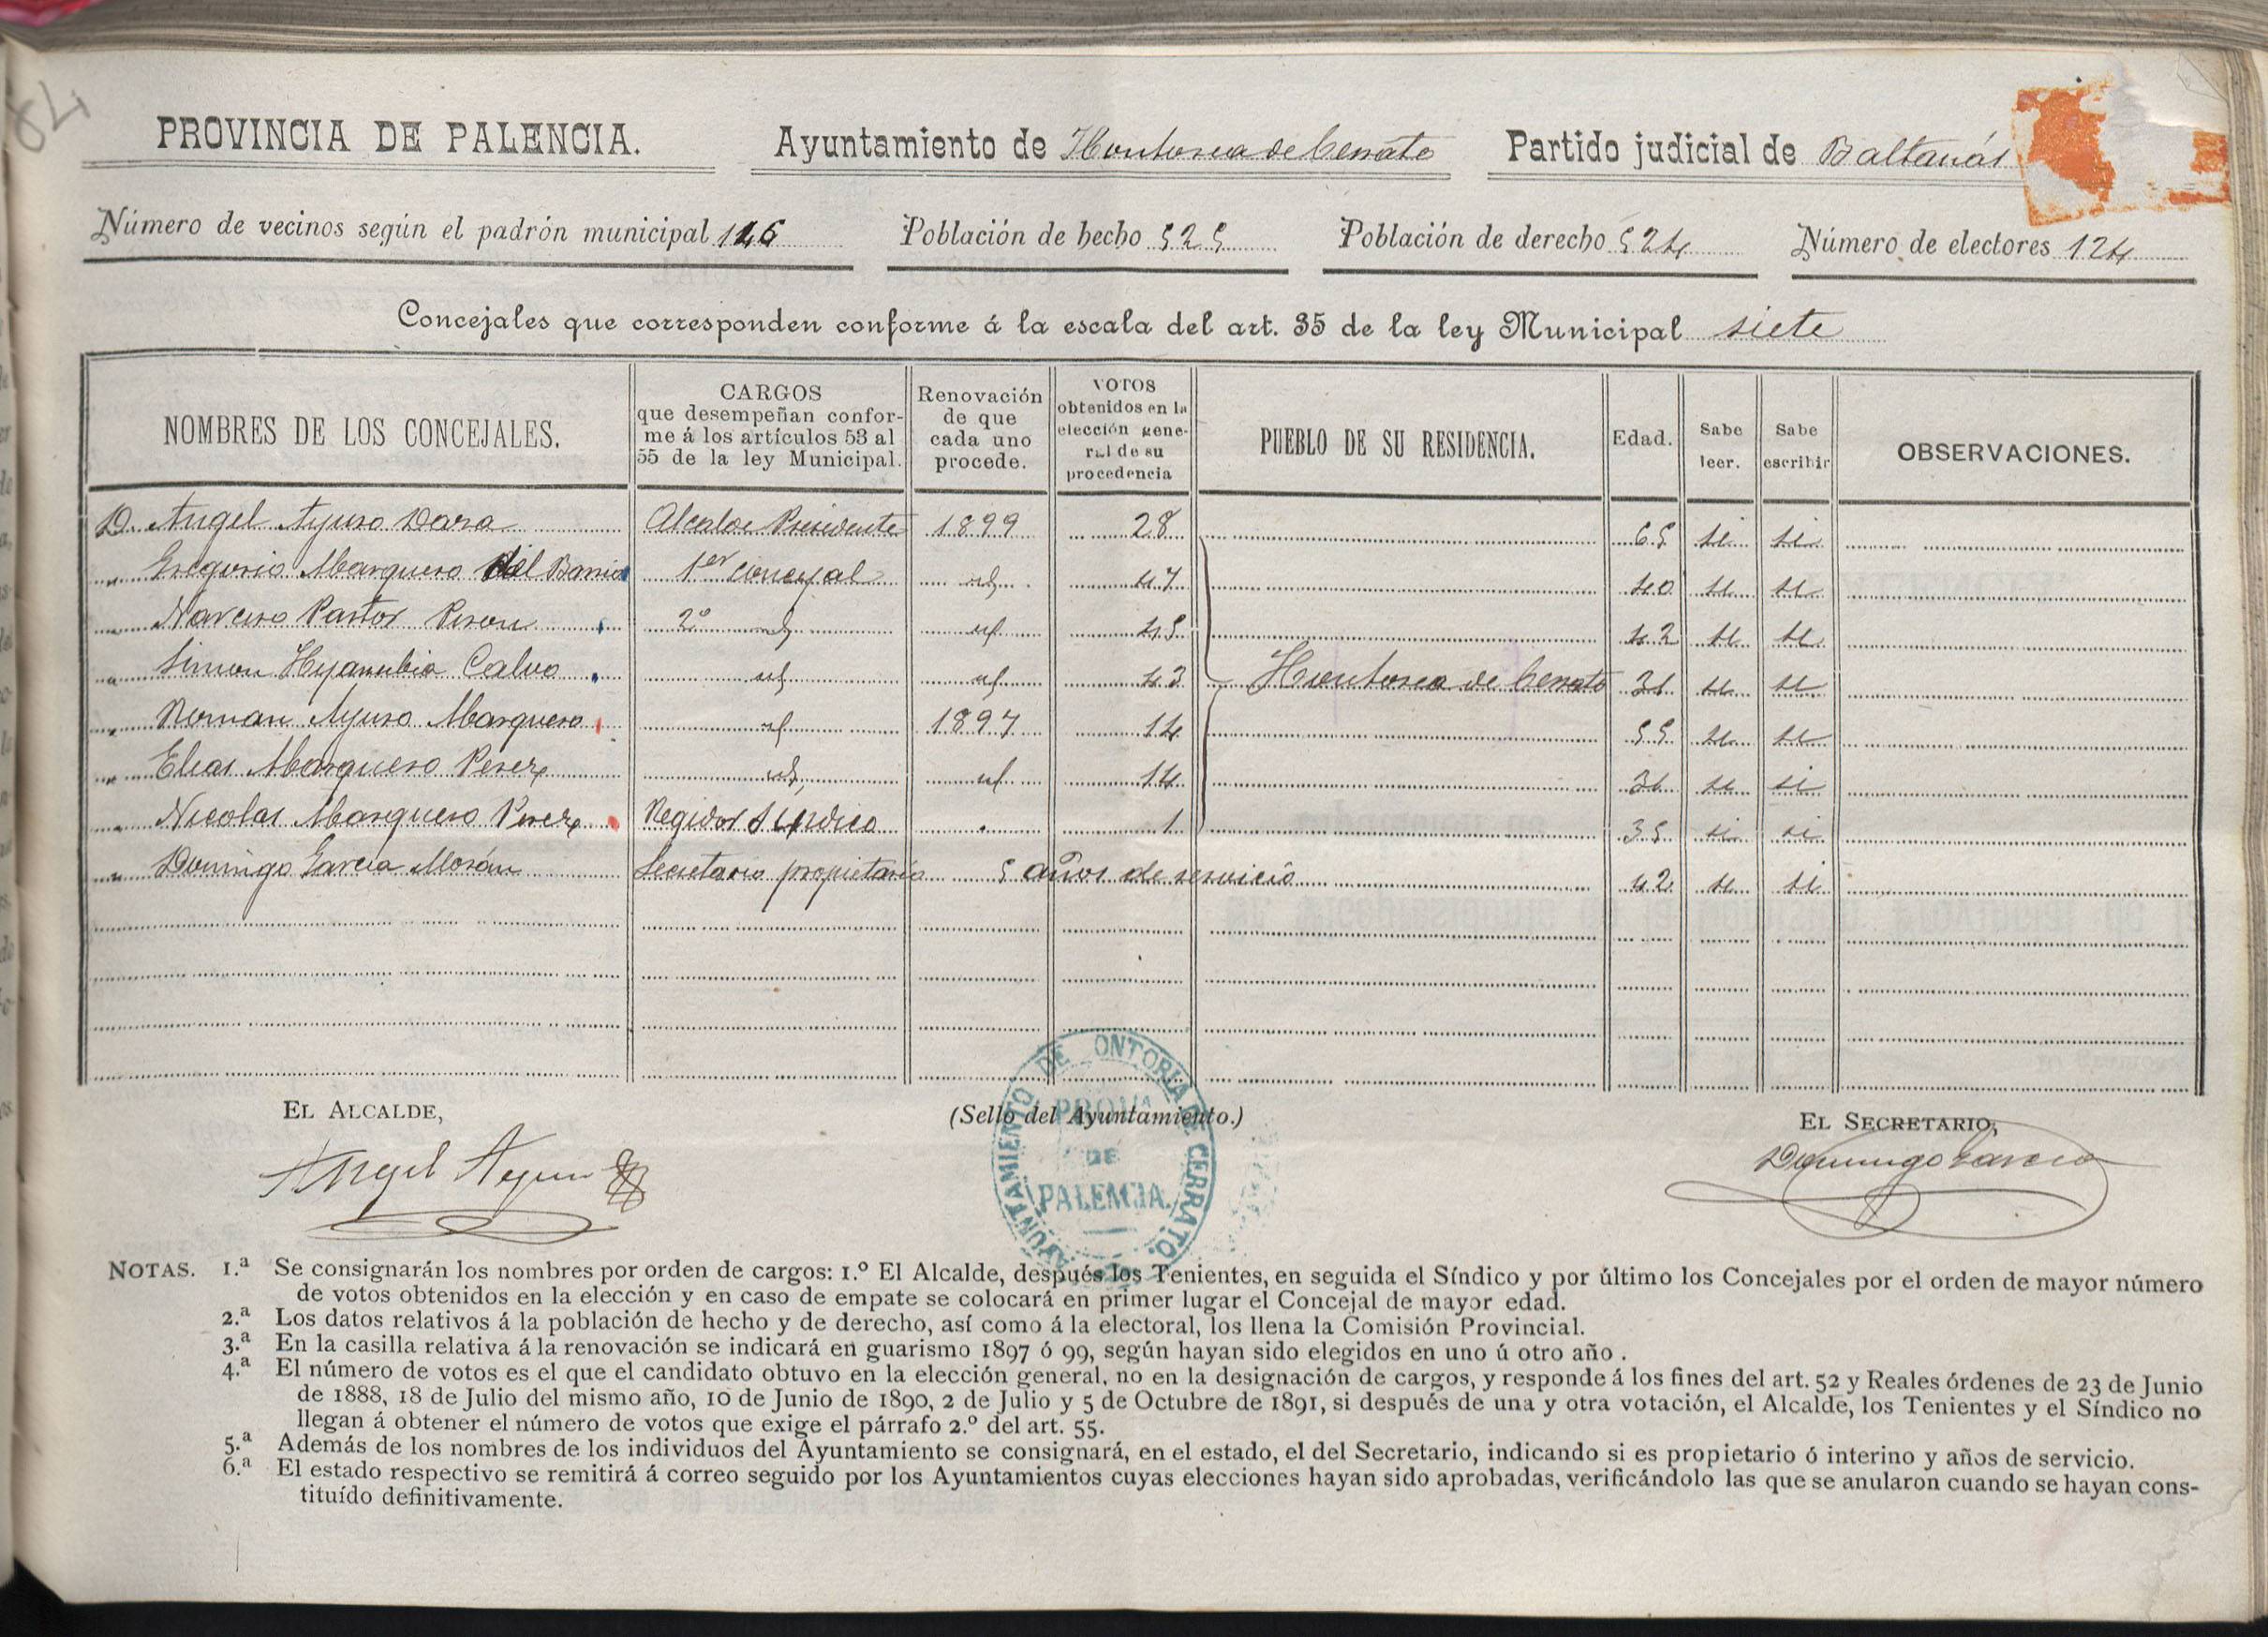 PROVINCIA DE PALENCIA. Ayuntamiento de Hontoria de Cerrato Partido judicial de Baltanás
Número de vecinos según el padrón municipal 126 Población de hecho 525 Población de derecho 524 Número de electores 124
Concejales que corresponden conforme á la escala del art. 35 de la ley Municipal siete
NOMBRES DE LOS CONCEJALES.
CARGOS
que desempeñan confor-
me á los artículos 53 al
55 de la ley Municipal.
Renovación
de que
cada uno
procede.
VOTOS
obtenidos en la
elección gene-
ral de su
procedencia
PUEBLO DE SU RESIDENCIA.
Edad.
Sabe
leer.
Sabe
escribir
OBSERVACIONES.
D. Angel Ayuso Dara Alcalde Presidente 1899 28 65 si si
" Gregorio Marquero del Barrio 1er concejal id 47 40 si si
" Narciso Pastor 2º id id 45 42 si si
" Simon Calvo id id 43 Hontoria de Cerrato 31 si si
" Roman Ayuso Marquero id 1897 14 55 si si
" Elias Marquero Perez id id 14 31 si si
" Nicolas Marquero Perez Regidor Sindico 1 35 si si
" Domingo Garcia Morán Secretario propietario 5 años de servicio 42 si si
EL ALCALDE,
(Sello del Ayuntamiento.)
EL SECRETARIO,
Angel Ayuso
AYUNTAMIENTO DE ONTORIA DE CERRATO.
PROVᴬ
DE
PALENCIA.
Domingo Garcia
NOTAS. 1.ª Se consignarán los nombres por orden de cargos: 1.º El Alcalde, después los Tenientes, en seguida el Síndico y por último los Concejales por el orden de mayor número
de votos obtenidos en la elección y en caso de empate se colocará en primer lugar el Concejal de mayor edad.
2.ª Los datos relativos á la población de hecho y de derecho, así como á la electoral, los llena la Comisión Provincial.
3.ª En la casilla relativa á la renovación se indicará en guarismo 1897 ó 99, según hayan sido elegidos en uno ú otro año.
4.ª El número de votos es el que el candidato obtuvo en la elección general, no en la designación de cargos, y responde á los fines del art. 52 y Reales órdenes de 23 de Junio
de 1888, 18 de Julio del mismo año, 10 de Junio de 1890, 2 de Julio y 5 de Octubre de 1891, si después de una y otra votación, el Alcalde, los Tenientes y el Síndico no
llegan á obtener el número de votos que exige el párrafo 2.º del art. 55.
5.ª Además de los nombres de los individuos del Ayuntamiento se consignará, en el estado, el del Secretario, indicando si es propietario ó interino y años de servicio.
6.ª El estado respectivo se remitirá á correo seguido por los Ayuntamientos cuyas elecciones hayan sido aprobadas, verificándolo las que se anularon cuando se hayan cons-
tituído definitivamente.